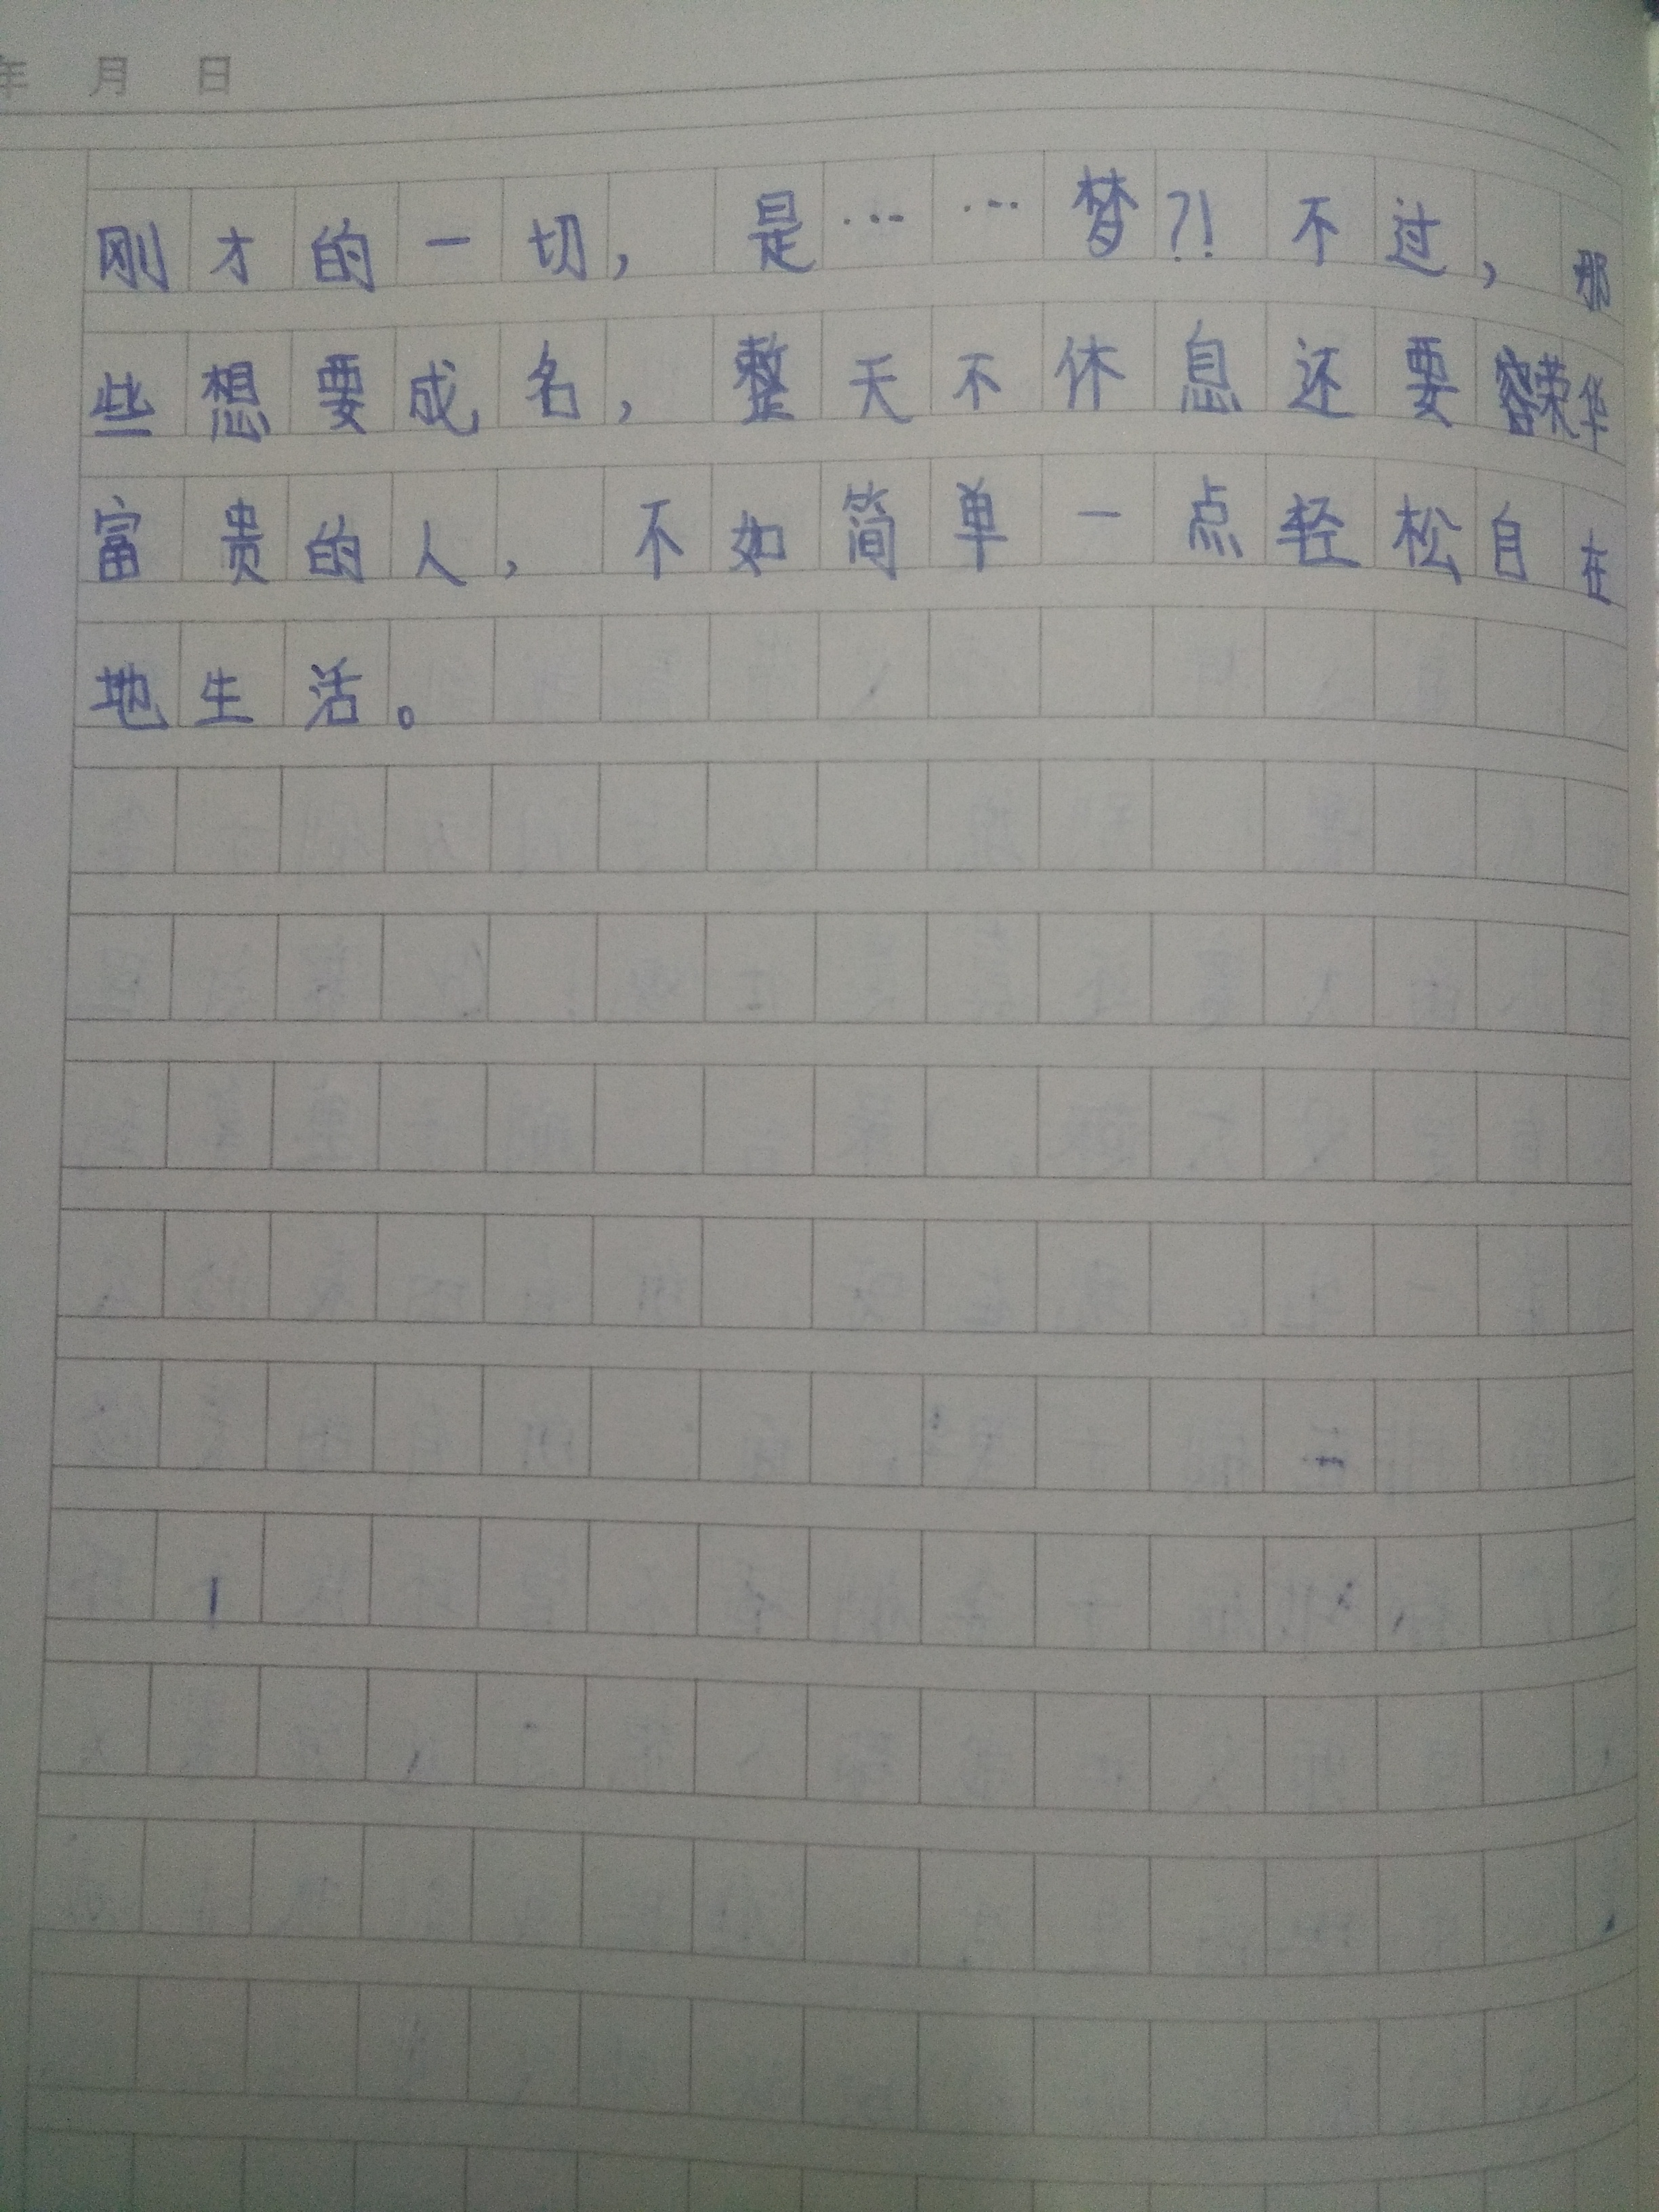 年 月 日
刚才的一切，是……梦?!不过，那
些想要成名，整天不休息还要荣华
富贵的人，不如简单一点轻松自在
地生活。